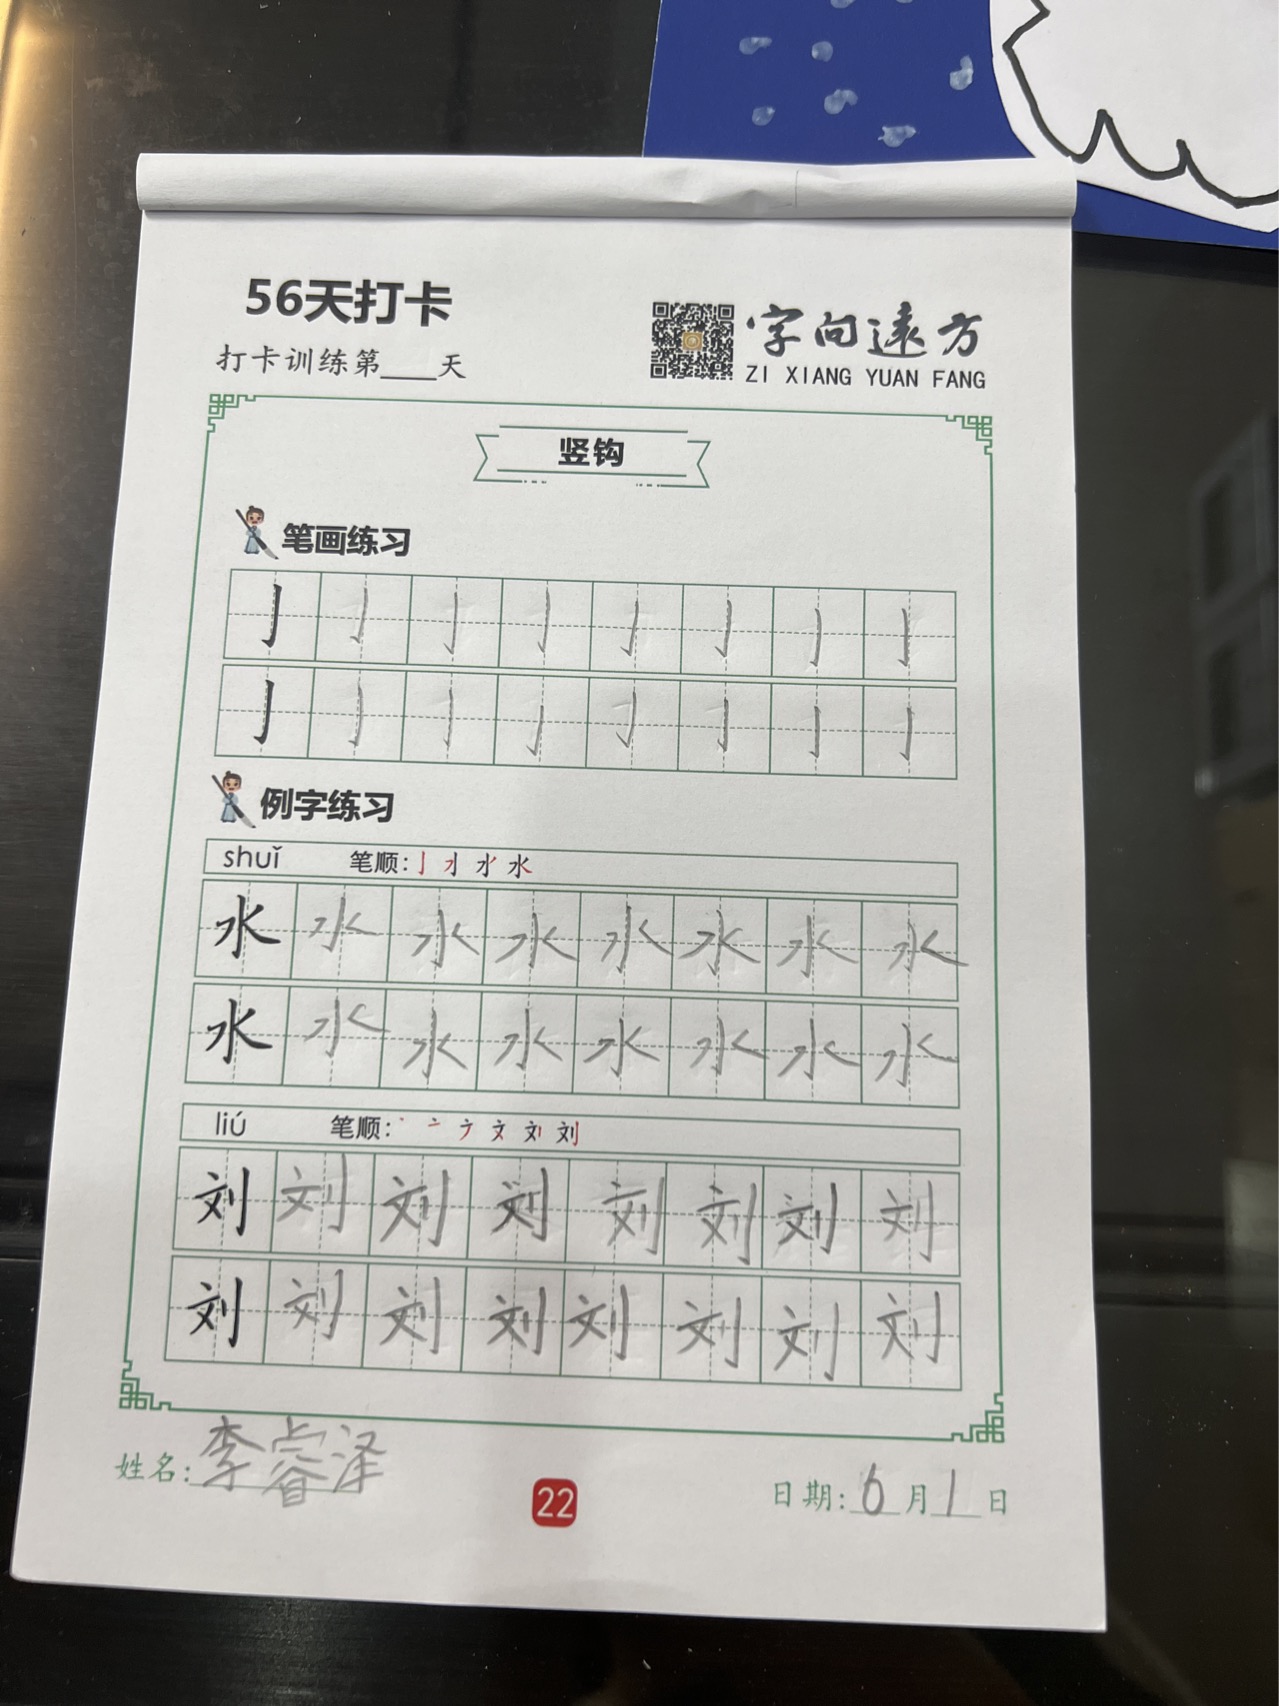 56天打卡
打卡训练第____天
字向远方
ZI XIANG YUAN FANG
竖钩
笔画练习
亅 亅 亅 亅 亅 亅 亅 亅
亅 亅 亅 亅 亅 亅 亅 亅
例字练习
shuǐ 笔顺:
水 水 水 水 水 水 水 水
水 水 水 水 水 水 水 水
liú 笔顺:
刘 刘 刘 刘 刘 刘 刘 刘
刘 刘 刘 刘 刘 刘 刘 刘
姓名:李睿泽
22
日期:6月1日